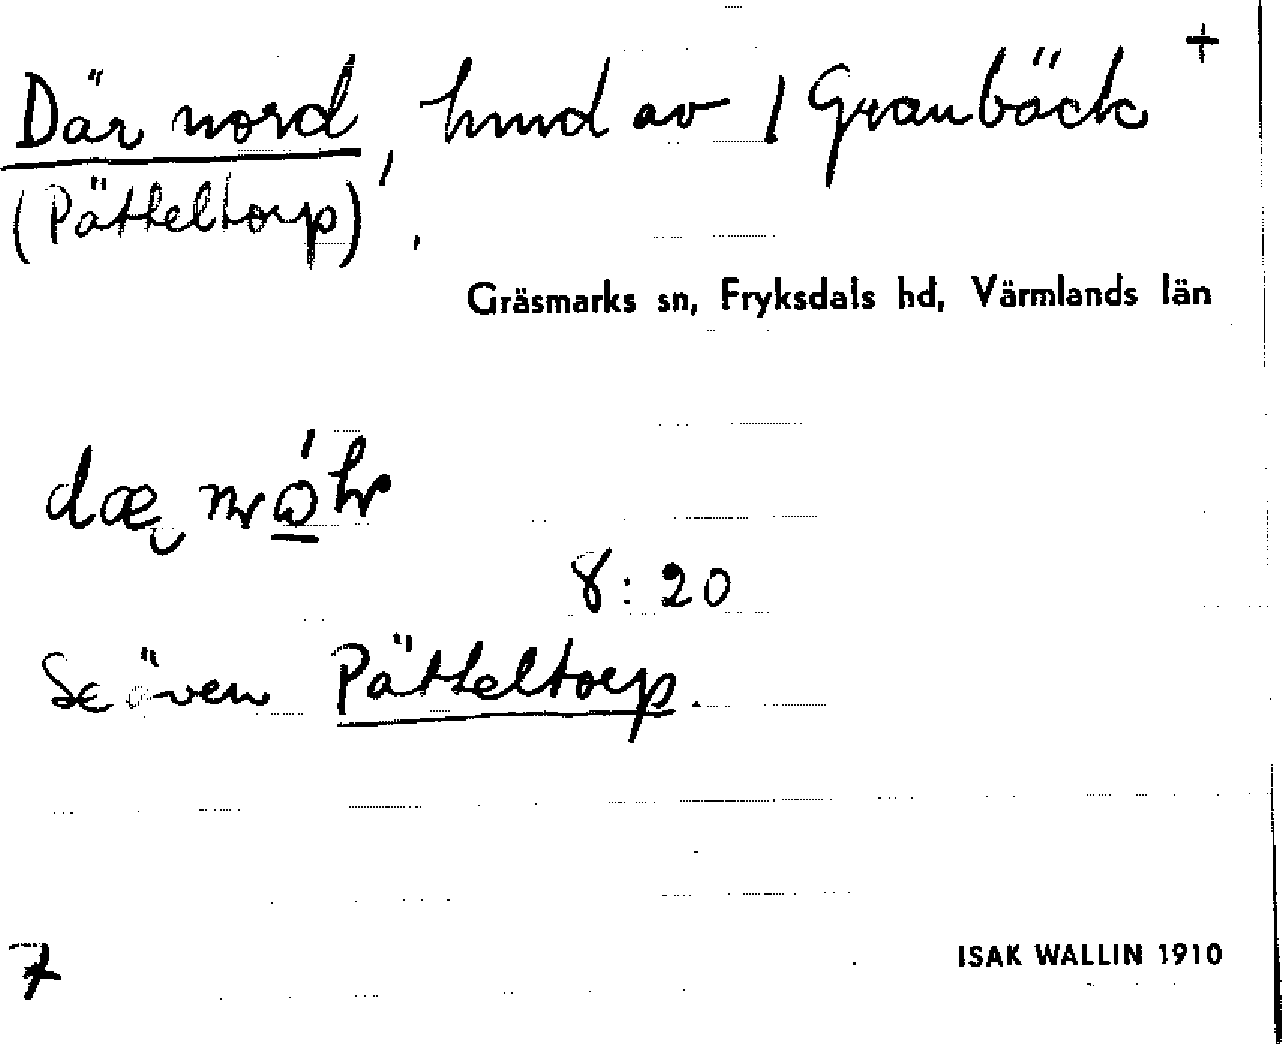 Där nord, hmd av 1 Granbäck +
(Pätteltorp)
Gräsmarks sn, Fryksdals hd, Värmlands län
8:20
Se även Pätteltorp.
7
ISAK WALLIN 1910